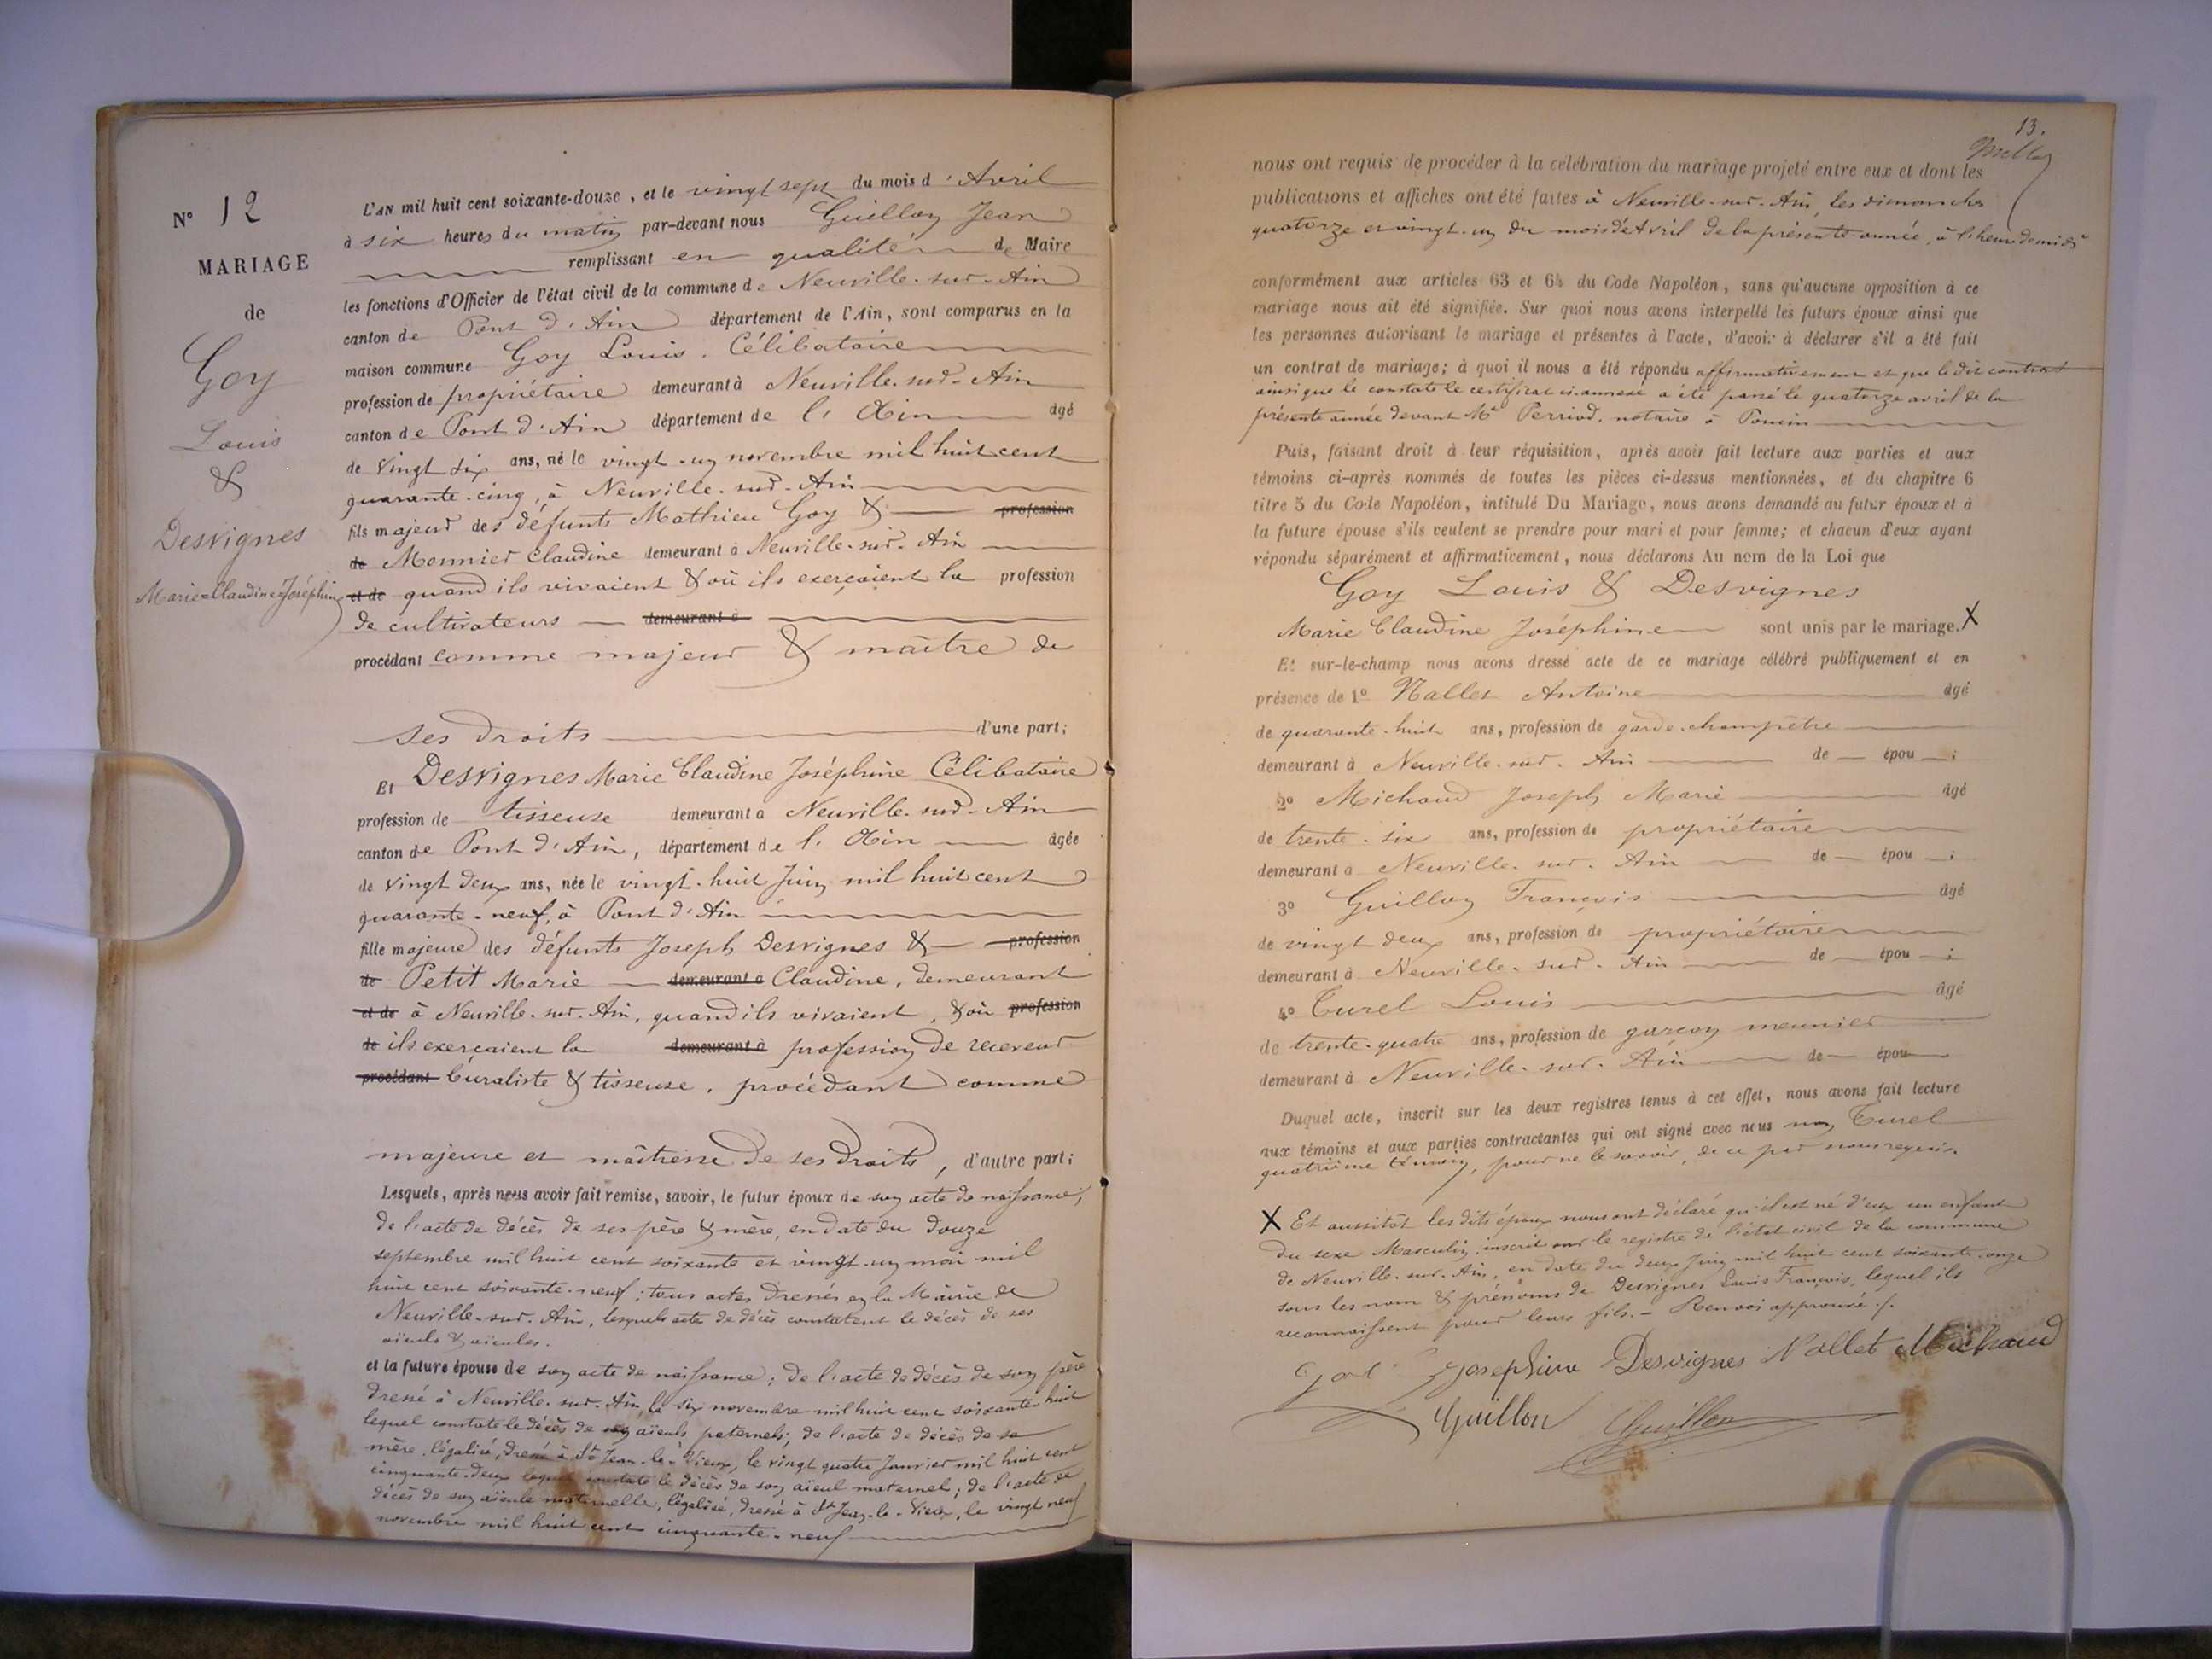 N° 12
MARIAGE
de
Goy
Louis
&
Desvignes
Marie Claudine Joséphine
L'AN mil huit cent soixante-douze, et le vingt sept du mois d'Avril
à six heures du matin par-devant nous Guillon Jean
remplissant en qualité de Maire
les fonctions d'Officier de l'état civil de la commune de Neuville-sur-Ain
canton de Pont d'Ain département de l'Ain, sont comparus en la
maison commune Goy Louis. Célibataire
profession de propriétaire demeurant à Neuville-sur-Ain
canton de Pont d'Ain département de l'Ain âgé
de vingt six ans, né le vingt-un novembre mil huit cent
quarante-cinq, à Neuville-sur-Ain
fils majeur des défunts Mathieu Goy & profession
de Monnier Claudine demeurant à Neuville-sur-Ain
et de quand ils vivaient & où ils exerçaient la profession
de cultivateurs demeurant à
procédant comme majeur & maître de
ses droits d'une part;
Et Desvignes Marie Claudine Joséphine Célibataire
profession de tisseuse demeurant à Neuville-sur-Ain
canton de Pont d'Ain, département de l'Ain âgée
de vingt deux ans, née le vingt-huit Juin mil huit cent
quarante-neuf, à Pont d'Ain
fille majeure des défunts Joseph Desvignes & profession
de Petit Marie demeurant à Claudine, demeurant
et de à Neuville-sur-Ain, quand ils vivaient, & où profession
de ils exerçaient la demeurant à profession de receveur
procédant buraliste & tisseuse, procédant comme
majeure et maîtresse de ses droits, d'autre part;
Lesquels, après nous avoir fait remise, savoir, le futur époux de son acte de naissance;
de l'acte de décès de ses père & mère, en date du douze
septembre mil huit cent soixante et vingt-un mai mil
huit cent soixante-neuf; tous actes dressés en la Mairie de
Neuville-sur-Ain, lesquels actes de décès constatent le décès de ses
aïeuls & aïeules.
et la future épouse de son acte de naissance; de l'acte de décès de son père
dressé à Neuville-sur-Ain le six novembre mil huit cent soixante huit
lequel constate le décès de ses aïeuls paternels; de l'acte de décès de sa
mère, légalisé, dressé à St Jean-le-Vieux, le vingt quatre Janvier mil huit cent
cinquante-deux lequel constate le décès de son aïeul maternel; de l'acte de
décès de son aïeule maternelle, légalisé, dressé à St Jean-le-Vieux, le vingt neuf
novembre mil huit cent cinquante-neuf
13.
Guillon
nous ont requis de procéder à la célébration du mariage projeté entre eux et dont les
publications et affiches ont été faites à Neuville-sur-Ain, les dimanches
quatorze et vingt-un du mois d'Avril de la présente année, à l'heure de midi
conformément aux articles 63 et 64 du Code Napoléon, sans qu'aucune opposition à ce
mariage nous ait été signifiée. Sur quoi nous avons interpellé les futurs époux ainsi que
les personnes autorisant le mariage et présentes à l'acte, d'avoir à déclarer s'il a été fait
un contrat de mariage; à quoi il nous a été répondu affirmativement et que le dit contrat
ainsi que le constate le certificat ci-annexé a été passé le quatorze avril de la
présente année devant Me Perriod, notaire à Poncin
Puis, faisant droit à leur réquisition, après avoir fait lecture aux parties et aux
témoins ci-après nommés de toutes les pièces ci-dessus mentionnées, et du chapitre 6
titre 5 du Code Napoléon, intitulé Du Mariage, nous avons demandé au futur époux et à
la future épouse s'ils veulent se prendre pour mari et pour femme; et chacun d'eux ayant
répondu séparément et affirmativement, nous déclarons Au nom de la Loi que
Goy Louis & Desvignes
Marie Claudine Joséphine sont unis par le mariage. X
Et sur-le-champ nous avons dressé acte de ce mariage célébré publiquement et en
présence de 1° Nallet Antoine âgé
de quarante-huit ans, profession de garde-champêtre
demeurant à Neuville-sur-Ain de épou ;
2° Michaud Joseph Marie âgé
de trente-six ans, profession de propriétaire
demeurant à Neuville-sur-Ain de épou ;
3° Guillon François âgé
de vingt deux ans, profession de propriétaire
demeurant à Neuville-sur-Ain de épou ;
4° Curel Louis âgé
de trente-quatre ans, profession de garçon meunier
demeurant à Neuville-sur-Ain de épou
Duquel acte, inscrit sur les deux registres tenus à cet effet, nous avons fait lecture
aux témoins et aux parties contractantes qui ont signé avec nous non Curel
quatrième témoin, pour ne le savoir, de ce par nous requis.
X Et aussitôt les dits époux nous ont déclaré qu'il est né d'eux un enfant
du sexe Masculin, inscrit sur le registre de l'état civil de la commune
de Neuville-sur-Ain, en date du deux Juin mil huit cent soixante-onze
sous les nom & prénoms de Desvignes Louis François, lequel ils
reconnaissent pour leur fils. - Renvoi approuvé /.
Josephine Desvignes Nallet Michaud
Guillon Guillon